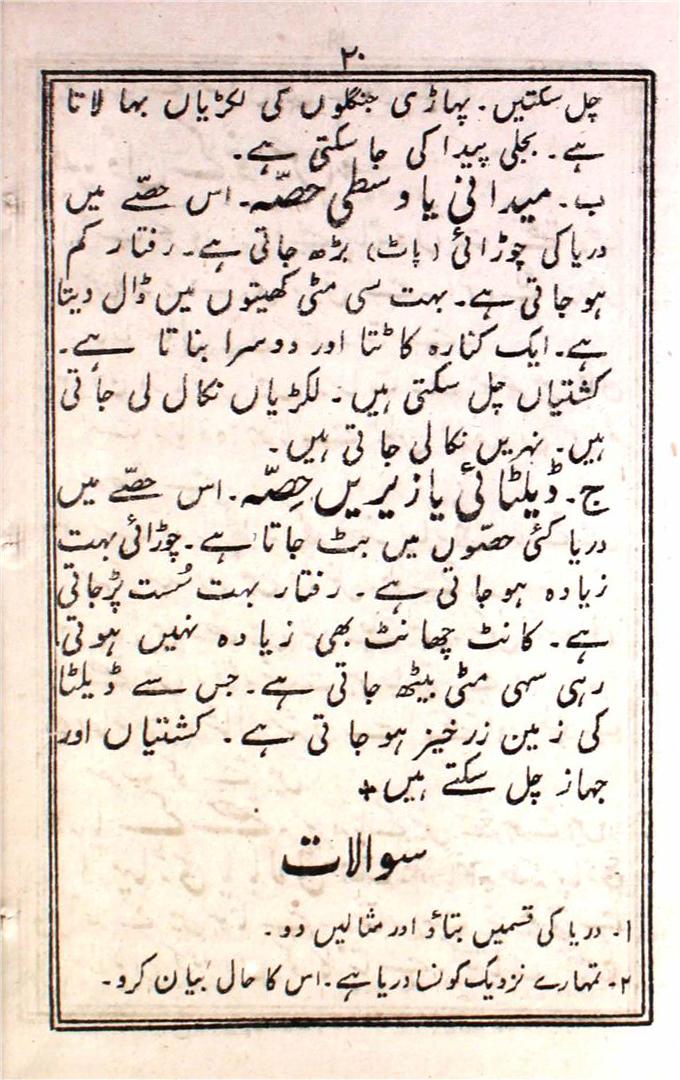 ۲۰
چل سکتیں۔ پہاڑی جنگلوں کی لکڑیاں بہا لاتا
ہے۔ بجلی پیدا کی جا سکتی ہے۔
ب۔ میدانی یا وسطی حصّہ۔ اس حصّے میں
دریا کی چوڑائی (پاٹ) بڑھ جاتی ہے۔ رفتار کم
ہو جاتی ہے۔ بہت سی مٹی کھیتوں میں ڈال دیتا
ہے۔ ایک کنارہ کاٹتا اور دوسرا بناتا ہے۔
کشتیاں چل سکتی ہیں۔ لکڑیاں نکال لی جاتی
ہیں۔ نہریں نکالی جاتی ہیں۔
ج۔ ڈیلٹائی یا زیریں حِصّہ۔ اس حصّے میں
دریا کئی حصّوں میں بٹ جاتا ہے۔ چوڑائی بہت
زیادہ ہو جاتی ہے۔ رفتار بہت سُست پڑ جاتی
ہے۔ کانٹ چھانٹ بھی زیادہ نہیں ہوتی۔
رہی سہی مٹی بیٹھ جاتی ہے۔ جس سے ڈیلٹا
کی زمین زرخیز ہو جاتی ہے۔ کشتیاں اور
جہاز چل سکتے ہیں +
سوالات
۱۔ دریا کی قسمیں بتاؤ اور مثالیں دو۔
۲۔ تمہارے نزدیک کونسا دریا ہے۔ اس کا حال بیان کرو۔